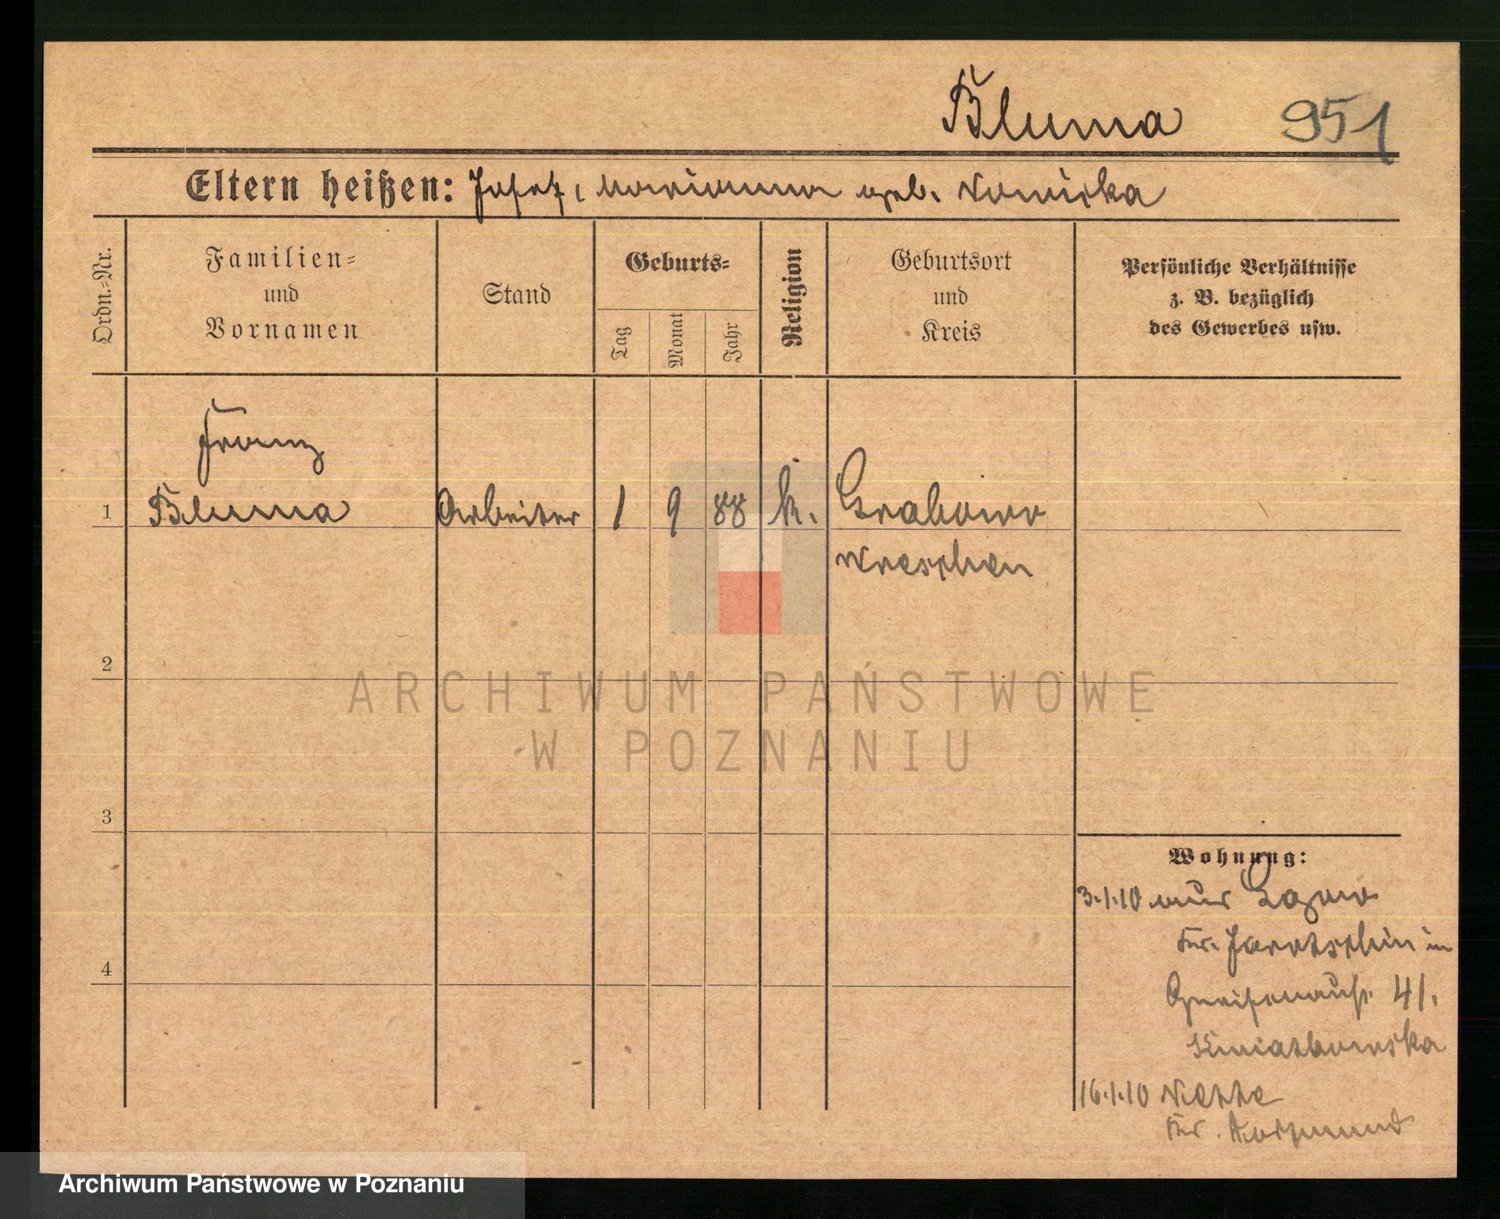 Bluma 951
Eltern heißen: Josef, Marianna geb. Nowicka
Ordn.-Nr.
Familien-
und
Vornamen
Stand
Geburts-
Tag
Monat
Jahr
Religion
Geburtsort
und
Kreis
Persönliche Verhältnisse
z. B. bezüglich
des Gewerbes usw.
Franz
1 Bluma Arbeiter 1 9 88 k. Grabowo
Wreschen
2
ARCHIWUM PAŃSTWOWE
W POZNANIU
3
Wohnung:
3.1.10 aus
Kr. Jarotschin in
4
41.
Kwiatkowska
16.1.10 Nette
Kr. Dortmund
Archiwum Państwowe w Poznaniu